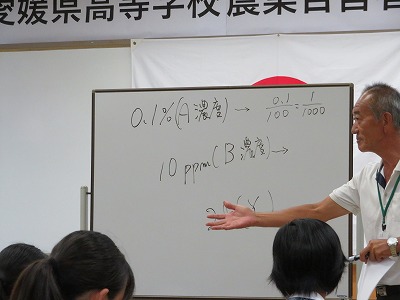 愛媛県高等学校農業
0.1%(A濃度)→ 0.1/100=1/1000
10ppm(B濃度)→